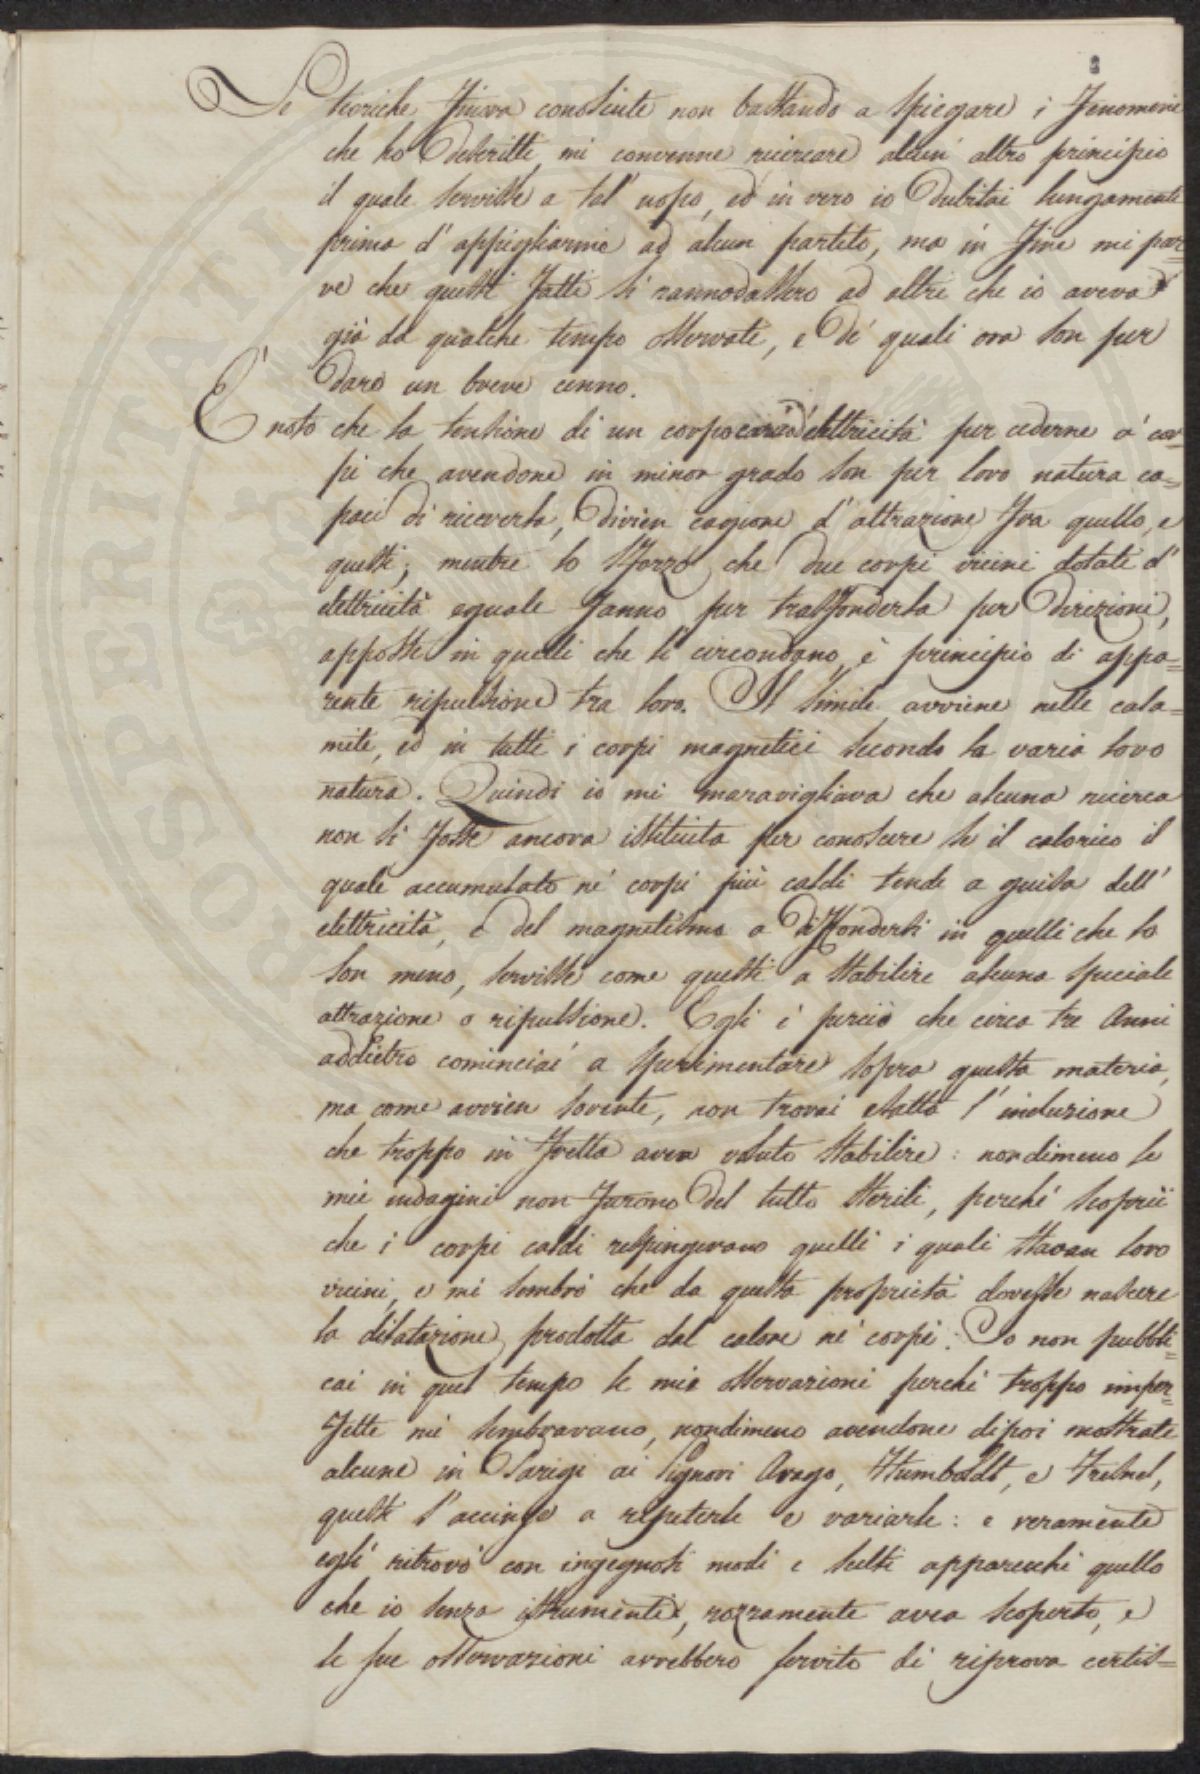 Le teoriche finora conosciute non bastando a spiegare i fenomeni
che ho descritti mi convenne ricercare alcun' altro principio
il quale servisse a tal' uopo, ed in vero io dubitai lungamente
prima d' appigliarmi ad alcun partito, ma in fine mi par=
ve che questi fatti si rannodassero ad altri che io aveva
già da qualche tempo osservati, e de' quali ora son per
dare un breve cenno.
È noto che la tensione di un corpo elettricità per cederne a' cor=
pi che avendone in minor grado son per loro natura ca=
paci di riceverla, divien cagione d' attrazione fra quello, e
questi; mentre lo sforzo che due corpi vicini dotati d'
elettricità eguale fanno per trasfonderla per direzioni,
opposte in quelli che li circondano, è principio di appa=
rente ripulsione tra loro. Il simile avviene nelle cala=
mite, ed in tutti i corpi magnetici secondo la varia loro
natura. Quindi io mi maravigliava che alcuna ricerca
non si fosse ancora istituita per conoscere se il calorico il
quale accumulato ne' corpi più caldi tende a guisa dell'
elettricità, e del magnetismo a diffondersi in quelli che lo
son meno, servisse come questi a stabilire alcuna speciale
attrazione o ripulsione. Egli è perciò che circa tre Anni
addietro cominciai a sperimentare sopra questa materia,
ma come avvien sovente, non trovai esatta l' induzione
che troppo in fretta avea voluto stabilire: nondimeno le
mie indagini non furono del tutto sterili, perché scoprii
che i corpi caldi respingevano quelli i quali stavan loro
vicini, e mi sembrò che da questa proprietà dovesse nascere
la dilatazione prodotta dal calore ne' corpi. Io non pubbli=
cai in quel tempo le mie osservazioni perché troppo imper=
fette mi sembravano, nondimeno avendone dipoi mostrate
alcune in Parigi ai Signori Arago, Humboldt, e Fresnel,
questi s' accinse a ripeterle e variarle: e veramente
egli ritrovò con ingegnosi modi e scelti apparecchi quello
che io senza istrumenti, rozzamente avea scoperto, e
le sue osservazioni avrebbero servito di riprova certis=